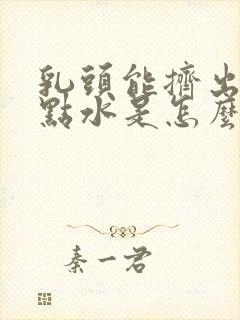 乳頭能擠出
點水是怎麼
秦一君